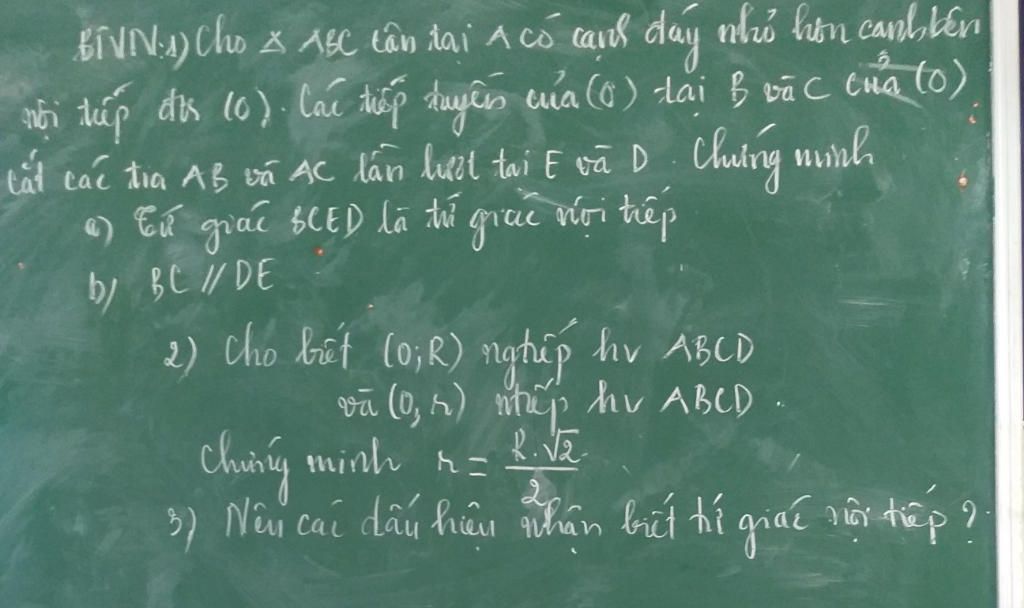 BTVN: 1) Cho Δ ABC cân tại A có cạnh đáy nhỏ hơn cạnh bên
nội tiếp đtr (O). Các tiếp tuyến của (O) tại B và C của (O)
cắt các tia AB và AC lần lượt tại E và D. Chứng minh
a) Tứ giác BCED là tứ giác nội tiếp
b) BC // DE
2) Cho biết (O;R) ngtiếp hv ABCD
và (O, r) ntiếp hv ABCD.
Chứng minh r = R.√2 / 2
3) Nêu các dấu hiệu nhận biết tứ giác nội tiếp?